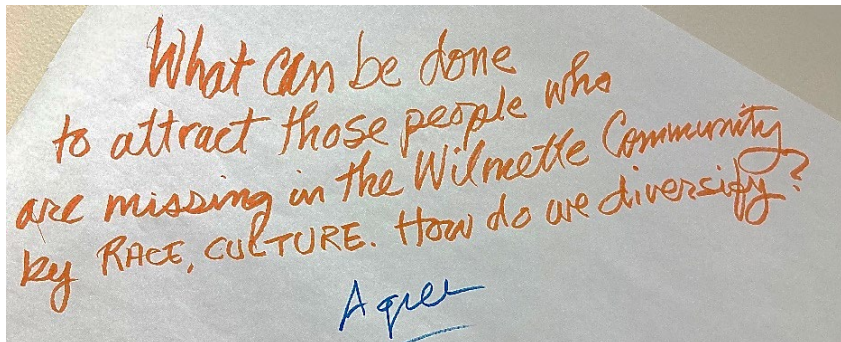 What can be done
to attract those people who
are missing in the Wilmette Community
by RACE, CULTURE. How do we diversify?
Agree